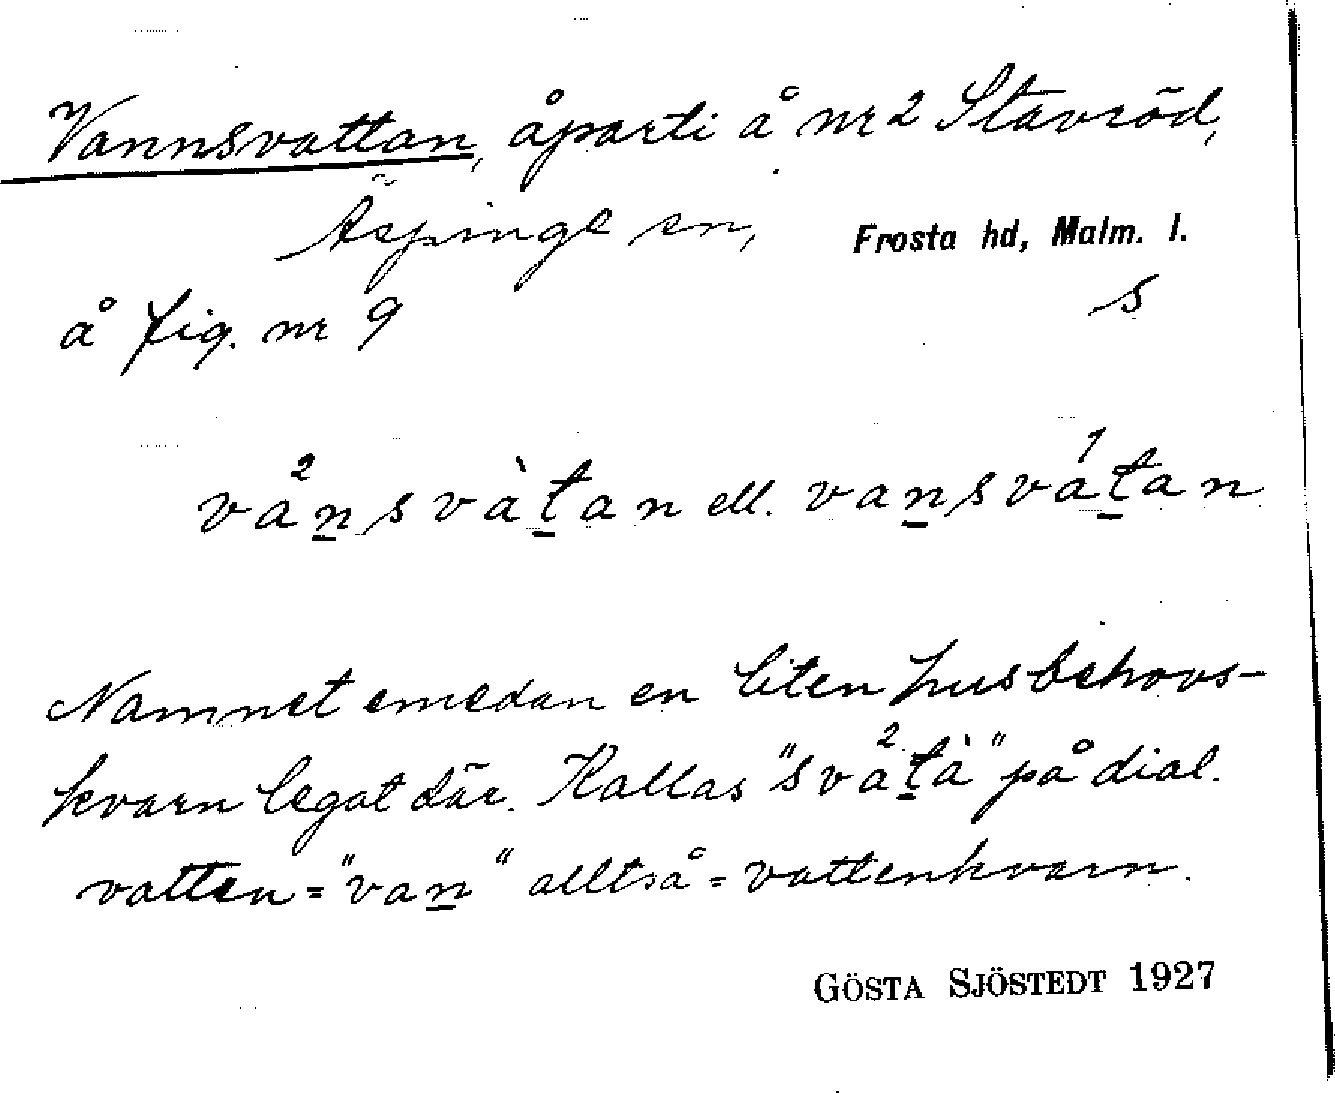 Vannsvattan, åparti å nr 2 Stavröd,
Äspinge sn, Frosta hd, Malm. l.
å fig. nr 9 s
va²nsvàtan ell. vansvá¹tan
Namnet emedan en liten husbehovs-
kvarn legat där. Kallas "sva²tà" på dial.
vatten = "van" alltså = vattenkvarn.
GÖSTA SJÖSTEDT 1927